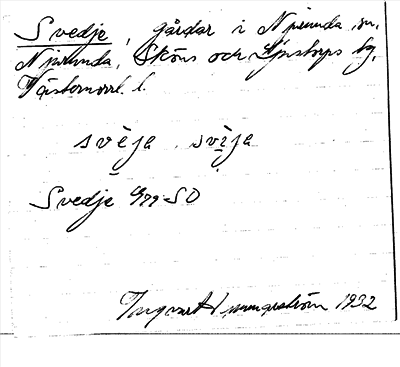 Svedje, gårdar i Njurunda sn,
Njurunda, Sköns och Ljustorps tg,
Västernorrl. l.
svèja svìja
Svedje 1/79 SO
Ingvar 1932